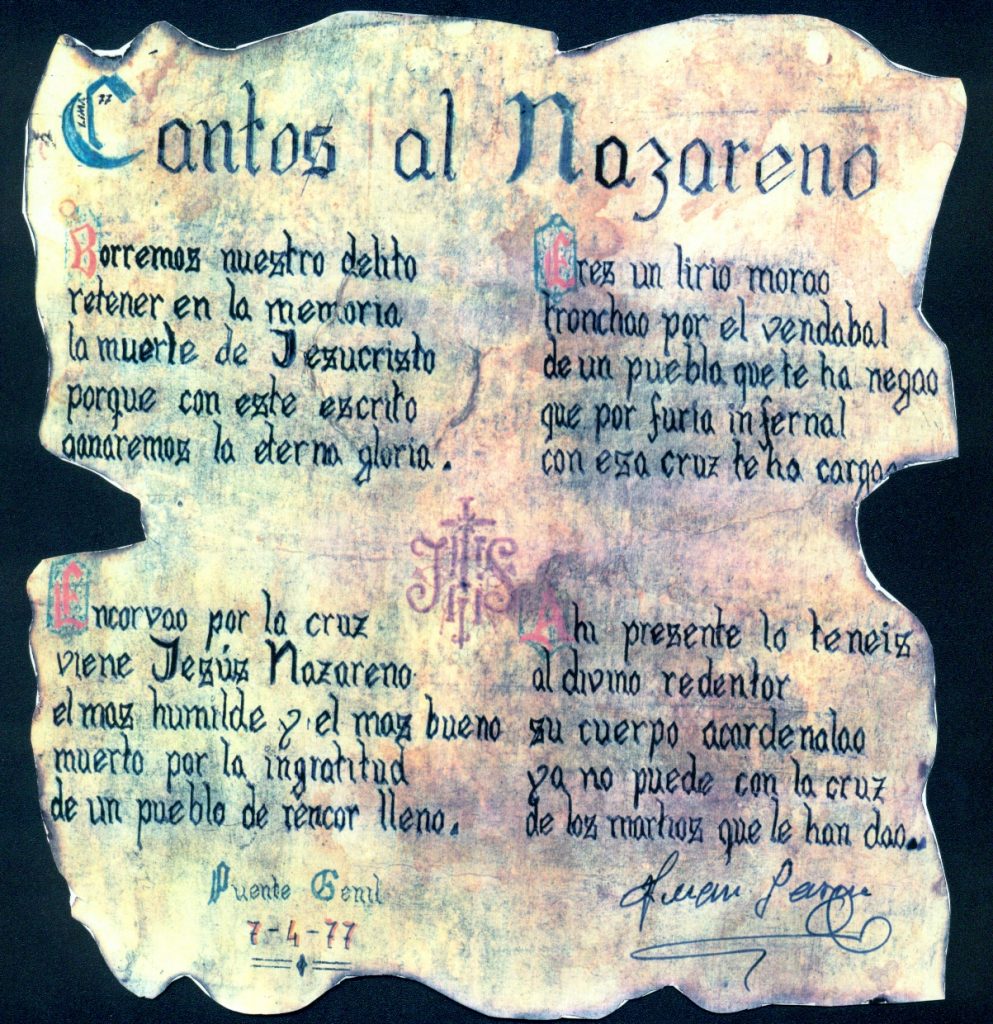 Cantos al Nazareno
Borremos nuestro delito
retener en la memoria
la muerte de Jesucristo
porque con este escrito
ganaremos la eterna gloria.
Eres un lirio morao
tronchao por el vendabal
de un pueblo que te ha negao
que por furia infernal
con esa cruz te ha cargao
JHS
Encorvao por la cruz
viene Jesús Nazareno
el mas humilde y el mas bueno
muerto por la ingratitud
de un pueblo de rencor lleno.
Ahi presente lo teneis
al divino redentor
su cuerpo acardenalao
ya no puede con la cruz
de los martios que le han dao.
Puente Genil
7-4-77
Juan